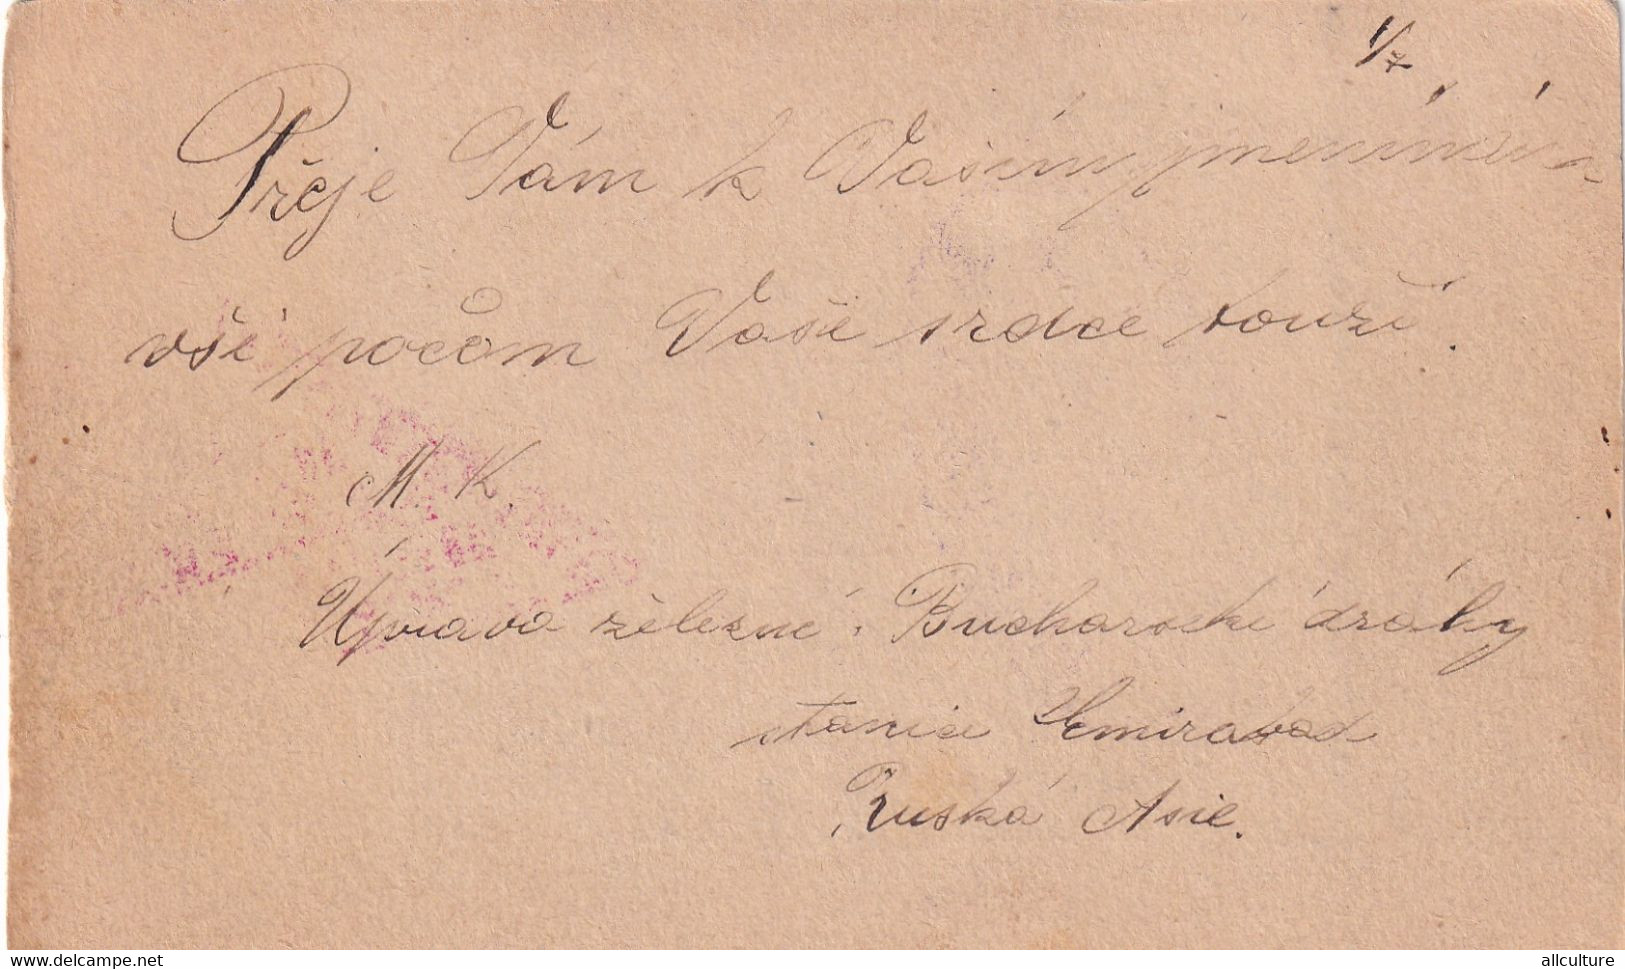 1/7
Přeje Vám k Vašim jmeninám
vši počom Vaše srdce touží.
M. K.
Úprava želežné. Bucharské dráhy
stanice Emirabad
Ruská Asie.
www.delcampe.net
allculture